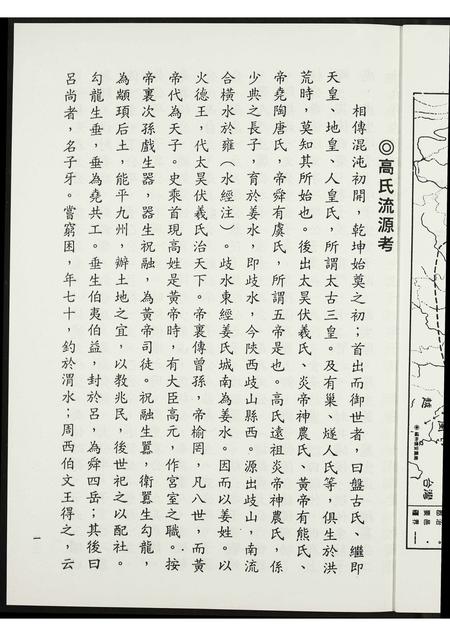 ◎高氏流源考
相傳混沌初開，乾坤始奠之初；首出而御世者，曰盤古氏、繼即
天皇、地皇、人皇氏，所謂太古三皇。及有巢、燧人氏等，俱生於洪
荒時，莫知其所始也。後出太昊伏羲氏、炎帝神農氏、黃帝有熊氏、
帝堯陶唐氏，帝舜有虞氏，所謂五帝是也。高氏遠祖炎帝神農氏，係
少典之長子，育於姜水，即歧水，今陝西歧山縣西。源出歧山，南流
合橫水於雍（水經注）。歧水東經姜氏城南為姜水。因而以姜姓。以
火德王，代太昊伏羲氏治天下。帝裏傳曾孫，帝榆罔，凡八世，而黃
帝代為天子。史乘首現高姓是黃帝時，有大臣高元，作宮室之職。按
帝裏次孫戲生器，器生祝融，為黃帝司徒。祝融生囂，衛囂生勾龍，
為顓頊后土，能平九州，辦土地之宜，以教兆民，後世祀之以配社。
勾龍生垂，垂為堯共工。垂生伯夷伯益，封於呂，為舜四岳；其後曰
呂尚者，名子牙。嘗窮困，年七十，釣於渭水；周西伯文王得之，云
一
越
台灣